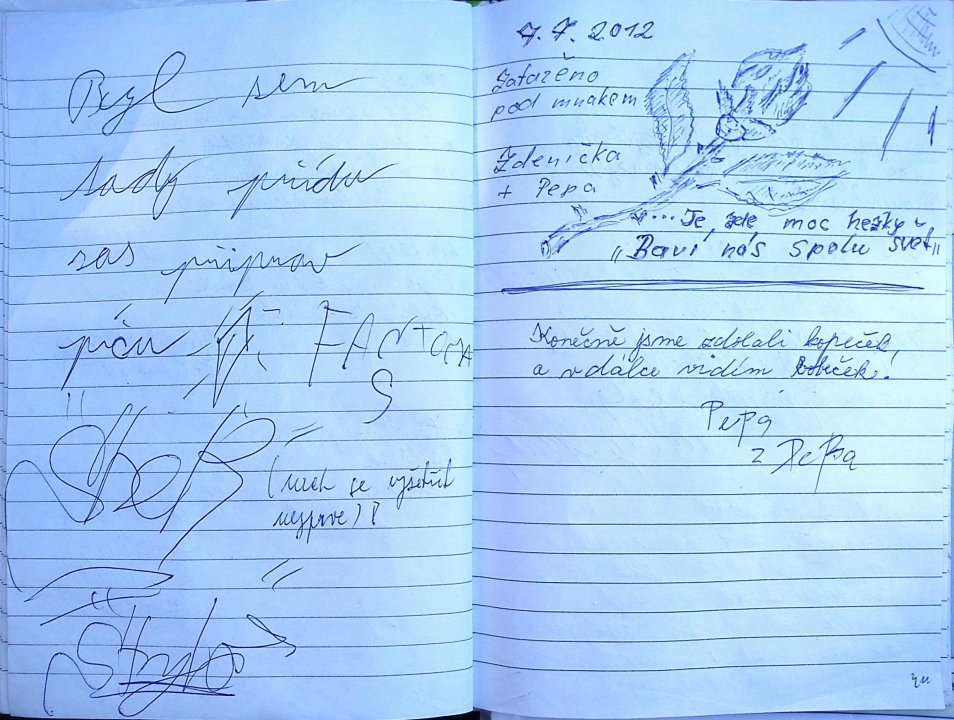 Byl sem
tady přídu
zas připrav
píču
(nech se vyšetřit
nejprve)!
7.7.2012
Zataženo
pod mrakem
Zdenička
+ Pepa
... Je zde moc hezky
"Baví nás spolu svět"
Konečně jsme zdolali kopeček,
a v dálce vidím
Pepa
z